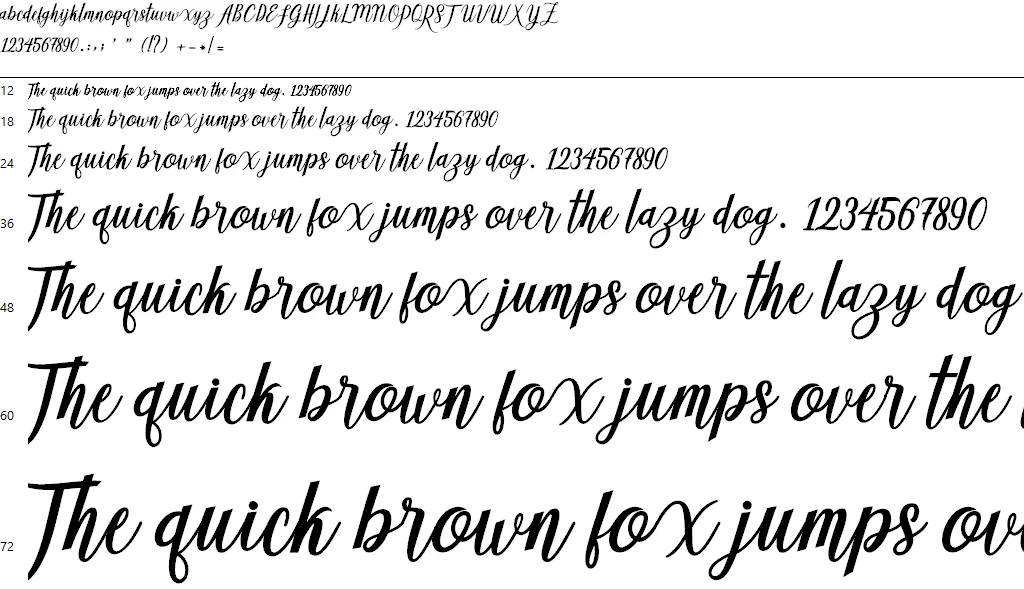 abcdefghijklmnopqrstuvwxyz ABCDEFGHIJKLMNOPQRSTUVWXYZ
1234567890.:,; ' " (!?) +-*/=
12 The quick brown fox jumps over the lazy dog. 1234567890
18 The quick brown fox jumps over the lazy dog. 1234567890
24 The quick brown fox jumps over the lazy dog. 1234567890
36 The quick brown fox jumps over the lazy dog. 1234567890
48 The quick brown fox jumps over the lazy dog
60 The quick brown fox jumps over the
72 The quick brown fox jumps ov